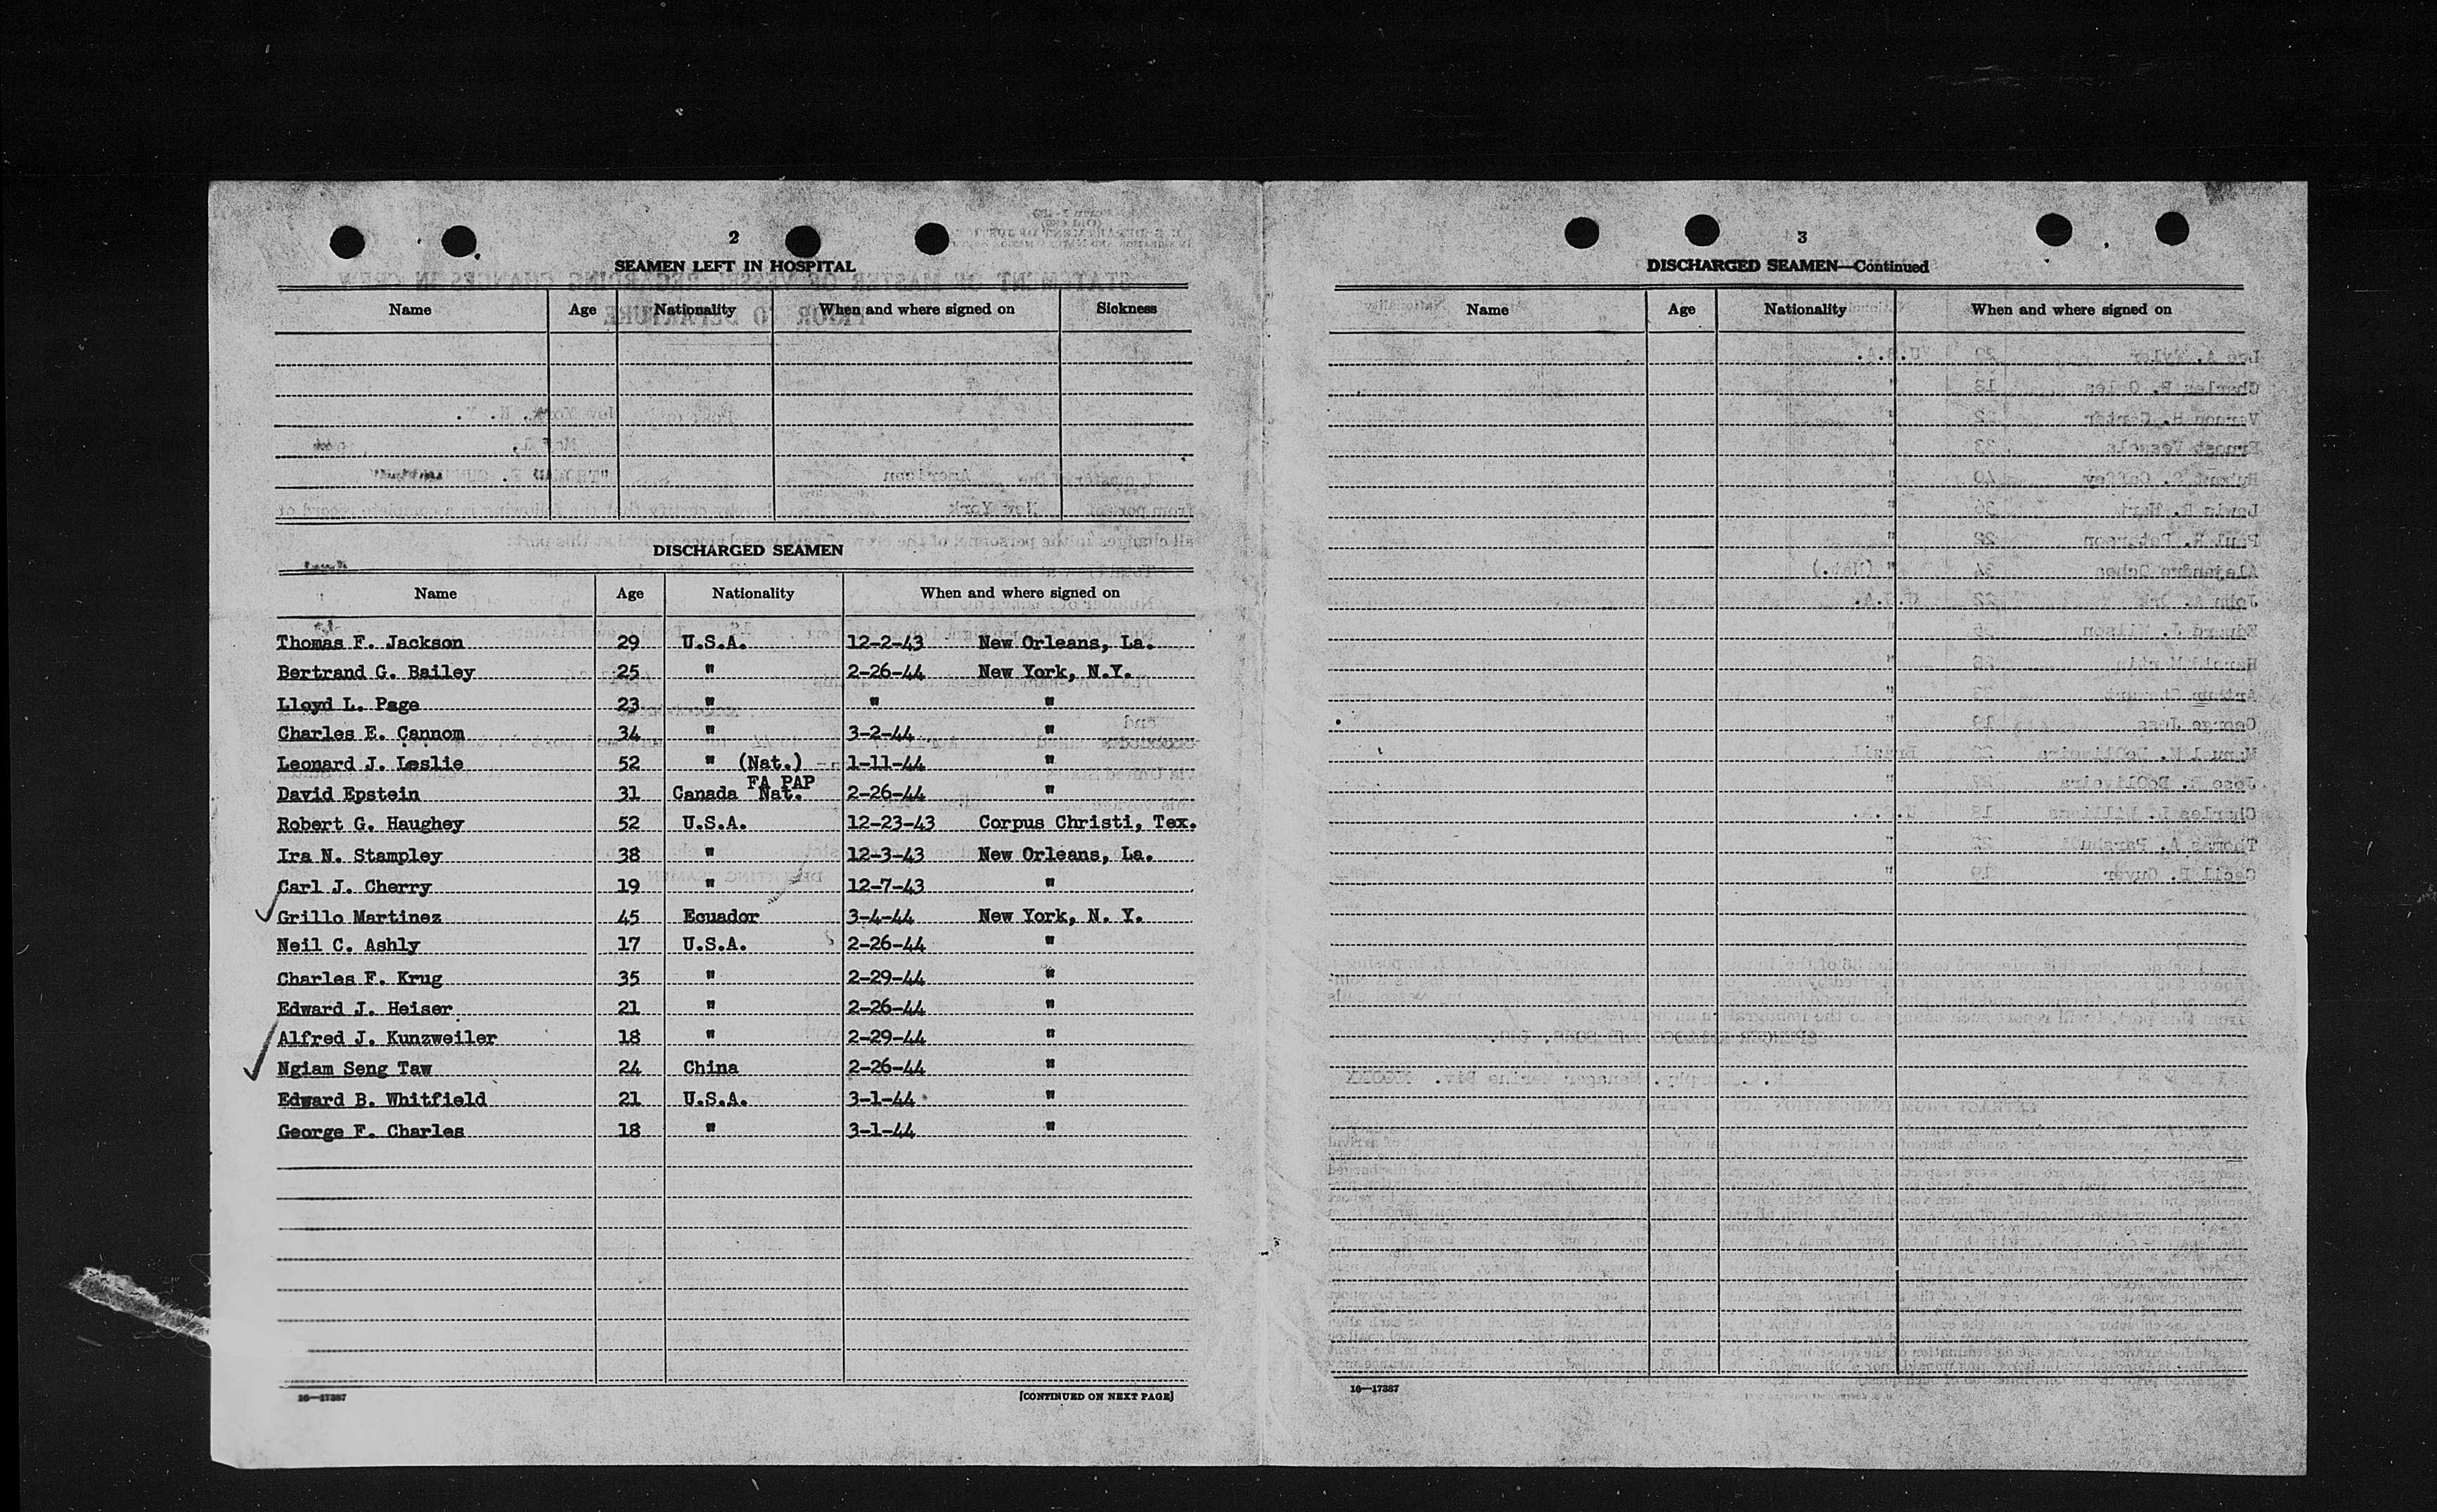 2
SEAMEN LEFT IN HOSPITAL
Name Age Nationality When and where signed on Sickness
DISCHARGED SEAMEN
Name Age Nationality When and where signed on
Thomas F. Jackson 29 U.S.A. 12-2-43 New Orleans, La.
Bertrand G. Bailey 25 " 2-26-44 New York, N.Y.
Lloyd L. Page 23 " " "
Charles E. Cannom 34 " 3-2-44 "
Leonard J. Leslie 52 " (Nat.) 1-11-44 "
FA PAP
David Epstein 31 Canada Nat. 2-26-44 "
Robert G. Haughey 52 U.S.A. 12-23-43 Corpus Christi, Tex.
Ira N. Stampley 38 " 12-3-43 New Orleans, La.
Carl J. Cherry 19 " 12-7-43 "
Grillo Martinez 45 Ecuador 3-4-44 New York, N. Y.
Neil C. Ashly 17 U.S.A. 2-26-44 "
Charles F. Krug 35 " 2-29-44 "
Edward J. Heiser 21 " 2-26-44 "
Alfred J. Kunzweiler 18 " 2-29-44 "
Ngiam Seng Taw 24 China 2-26-44 "
Edward B. Whitfield 21 U.S.A. 3-1-44 "
George F. Charles 18 " 3-1-44 "
16—17387 [CONTINUED ON NEXT PAGE]
3
DISCHARGED SEAMEN—Continued
Name Age Nationality When and where signed on
16—17387